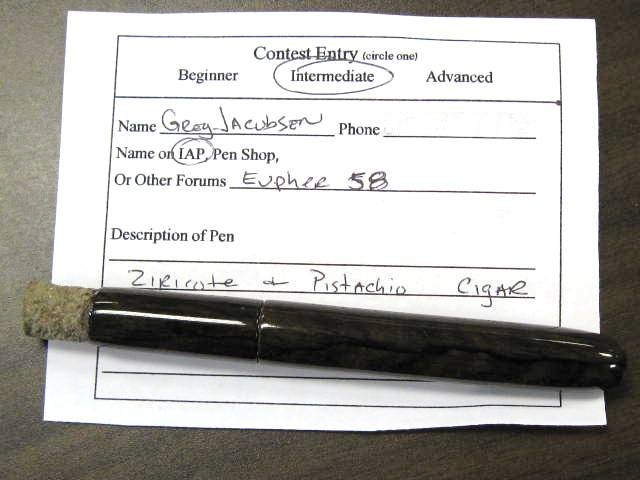 Contest Entry (circle one)
Beginner Intermediate Advanced
Name Greg Jacobsen Phone
Name on IAP, Pen Shop,
Or Other Forums Eupher 58
Description of Pen
Ziricote + Pistachio Cigar